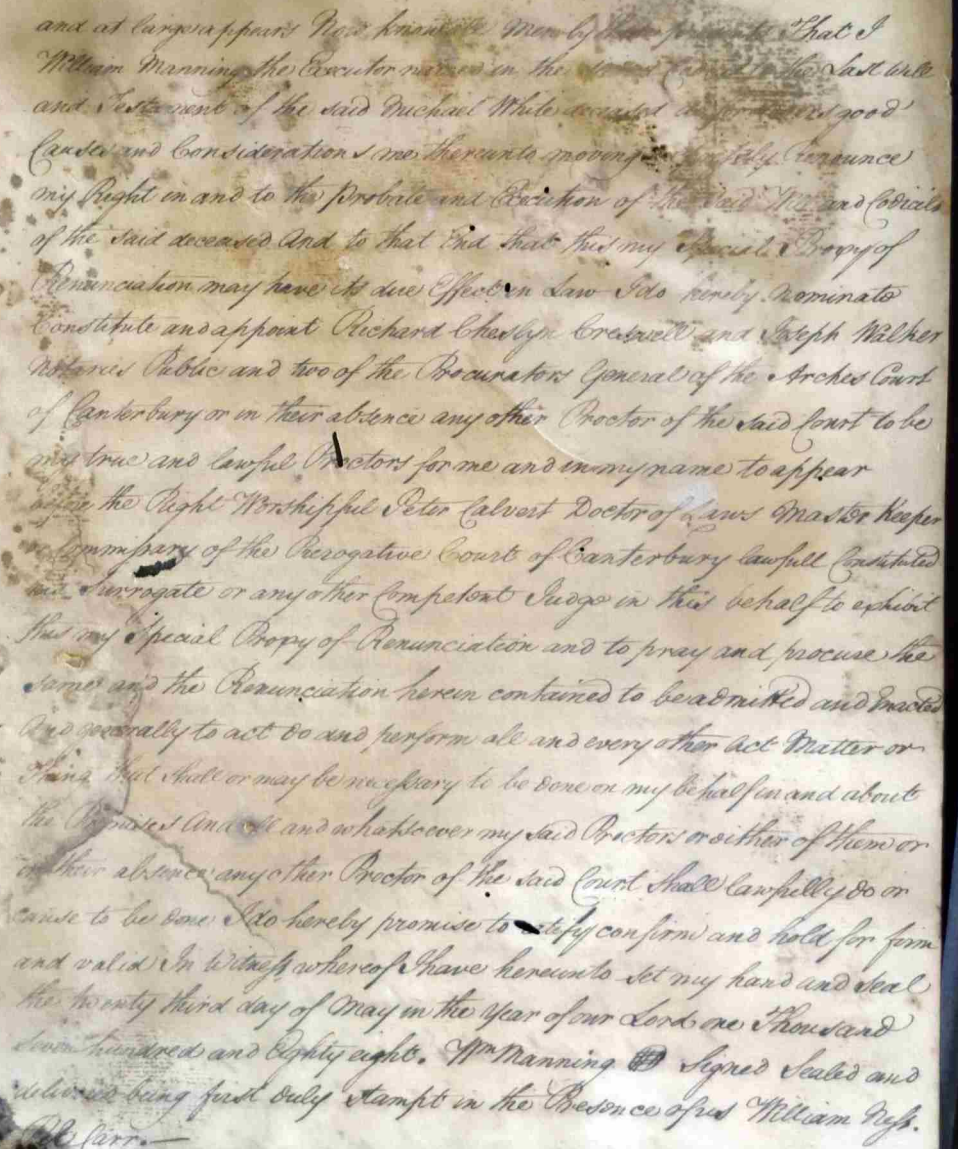 and at large appears Now know all Men by these presents That I
William Manning the Executor named in the to the Last Will
and Testament of the said Michael White deceased good
Causes and Considerations me thereunto moving Renounce
my Right in and to the Probate and Execution of the said Will and Codicils
of the said deceased And to that End that this my Special Proxy of
Renunciation may have its due Effect in Law I do hereby Nominate
Constitute and appoint Richard Cheslyn Creswell and Joseph Walker
Notaries Public and two of the Procurators General of the Arches Court
of Canterbury or in their absence any other Proctor of the said Court to be
my true and lawful Proctors for me and in my name to appear
before the Right Worshipful Peter Calvert Doctor of Laws Master Keeper
or Commissary of the Prerogative Court of Canterbury lawfull Constituted
his Surrogate or any other Competent Judge in this behalf to exhibit
this my Special Proxy of Renunciation and to pray and procure the
same and the Renunciation herein contained to be admitted and Enacted
And generally to act do and perform all and every other Act Matter or
Thing that shall or may be necessary to be done on my behalf in and about
the Premises And all and whatsoever my said Proctors or either of them or
in their absence any other Proctor of the said Court shall lawfully do or
cause to be done I do hereby promise to ratify confirm and hold for firm
and valid In Witness whereof I have hereunto set my hand and seal
the twenty third day of May in the Year of our Lord one Thousand
Seven hundred and Eighty eight. Wm Manning Signed Sealed and
delivered being first duly stampt in the Presence of us William Ness.
Carr.—